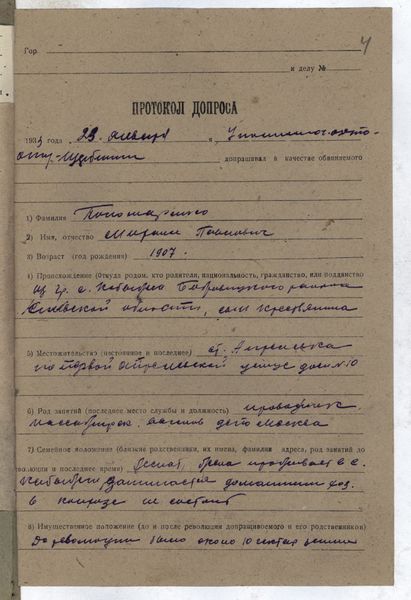 4
Гор
к делу №
ПРОТОКОЛ ДОПРОСА
1933 года 23 января я Уполномоч. ЭКО
допрашивал в качестве обвиняемого
1) Фамилия Пономаренко
2) Имя, отчество Михаил Павлович
3) Возраст (год рождения) 1907.
4) Происхождение (Откуда родом, кто родители, национальность, гражданство, или подданство
из гр. с. района
Киевской области, сын крестьянина
5) Местожительство (постоянное и последнее) ст. Апрелевка
по первой Апрелевской улице дом № 10
6) Род занятий (последнее место службы и должность) проводник
пассажирск. вагонов депо Москва
7) Семейное положение (близкие родственники, их имена, фамилии адреса, род занятий до
волюции и последнее время) женат, проживает в с.
занимается домашним хоз.
в колхозе не состоит
8) Имущественное положение (до и после революции допрашиваемого и его родственников)
До революции было около 10 гектар земли